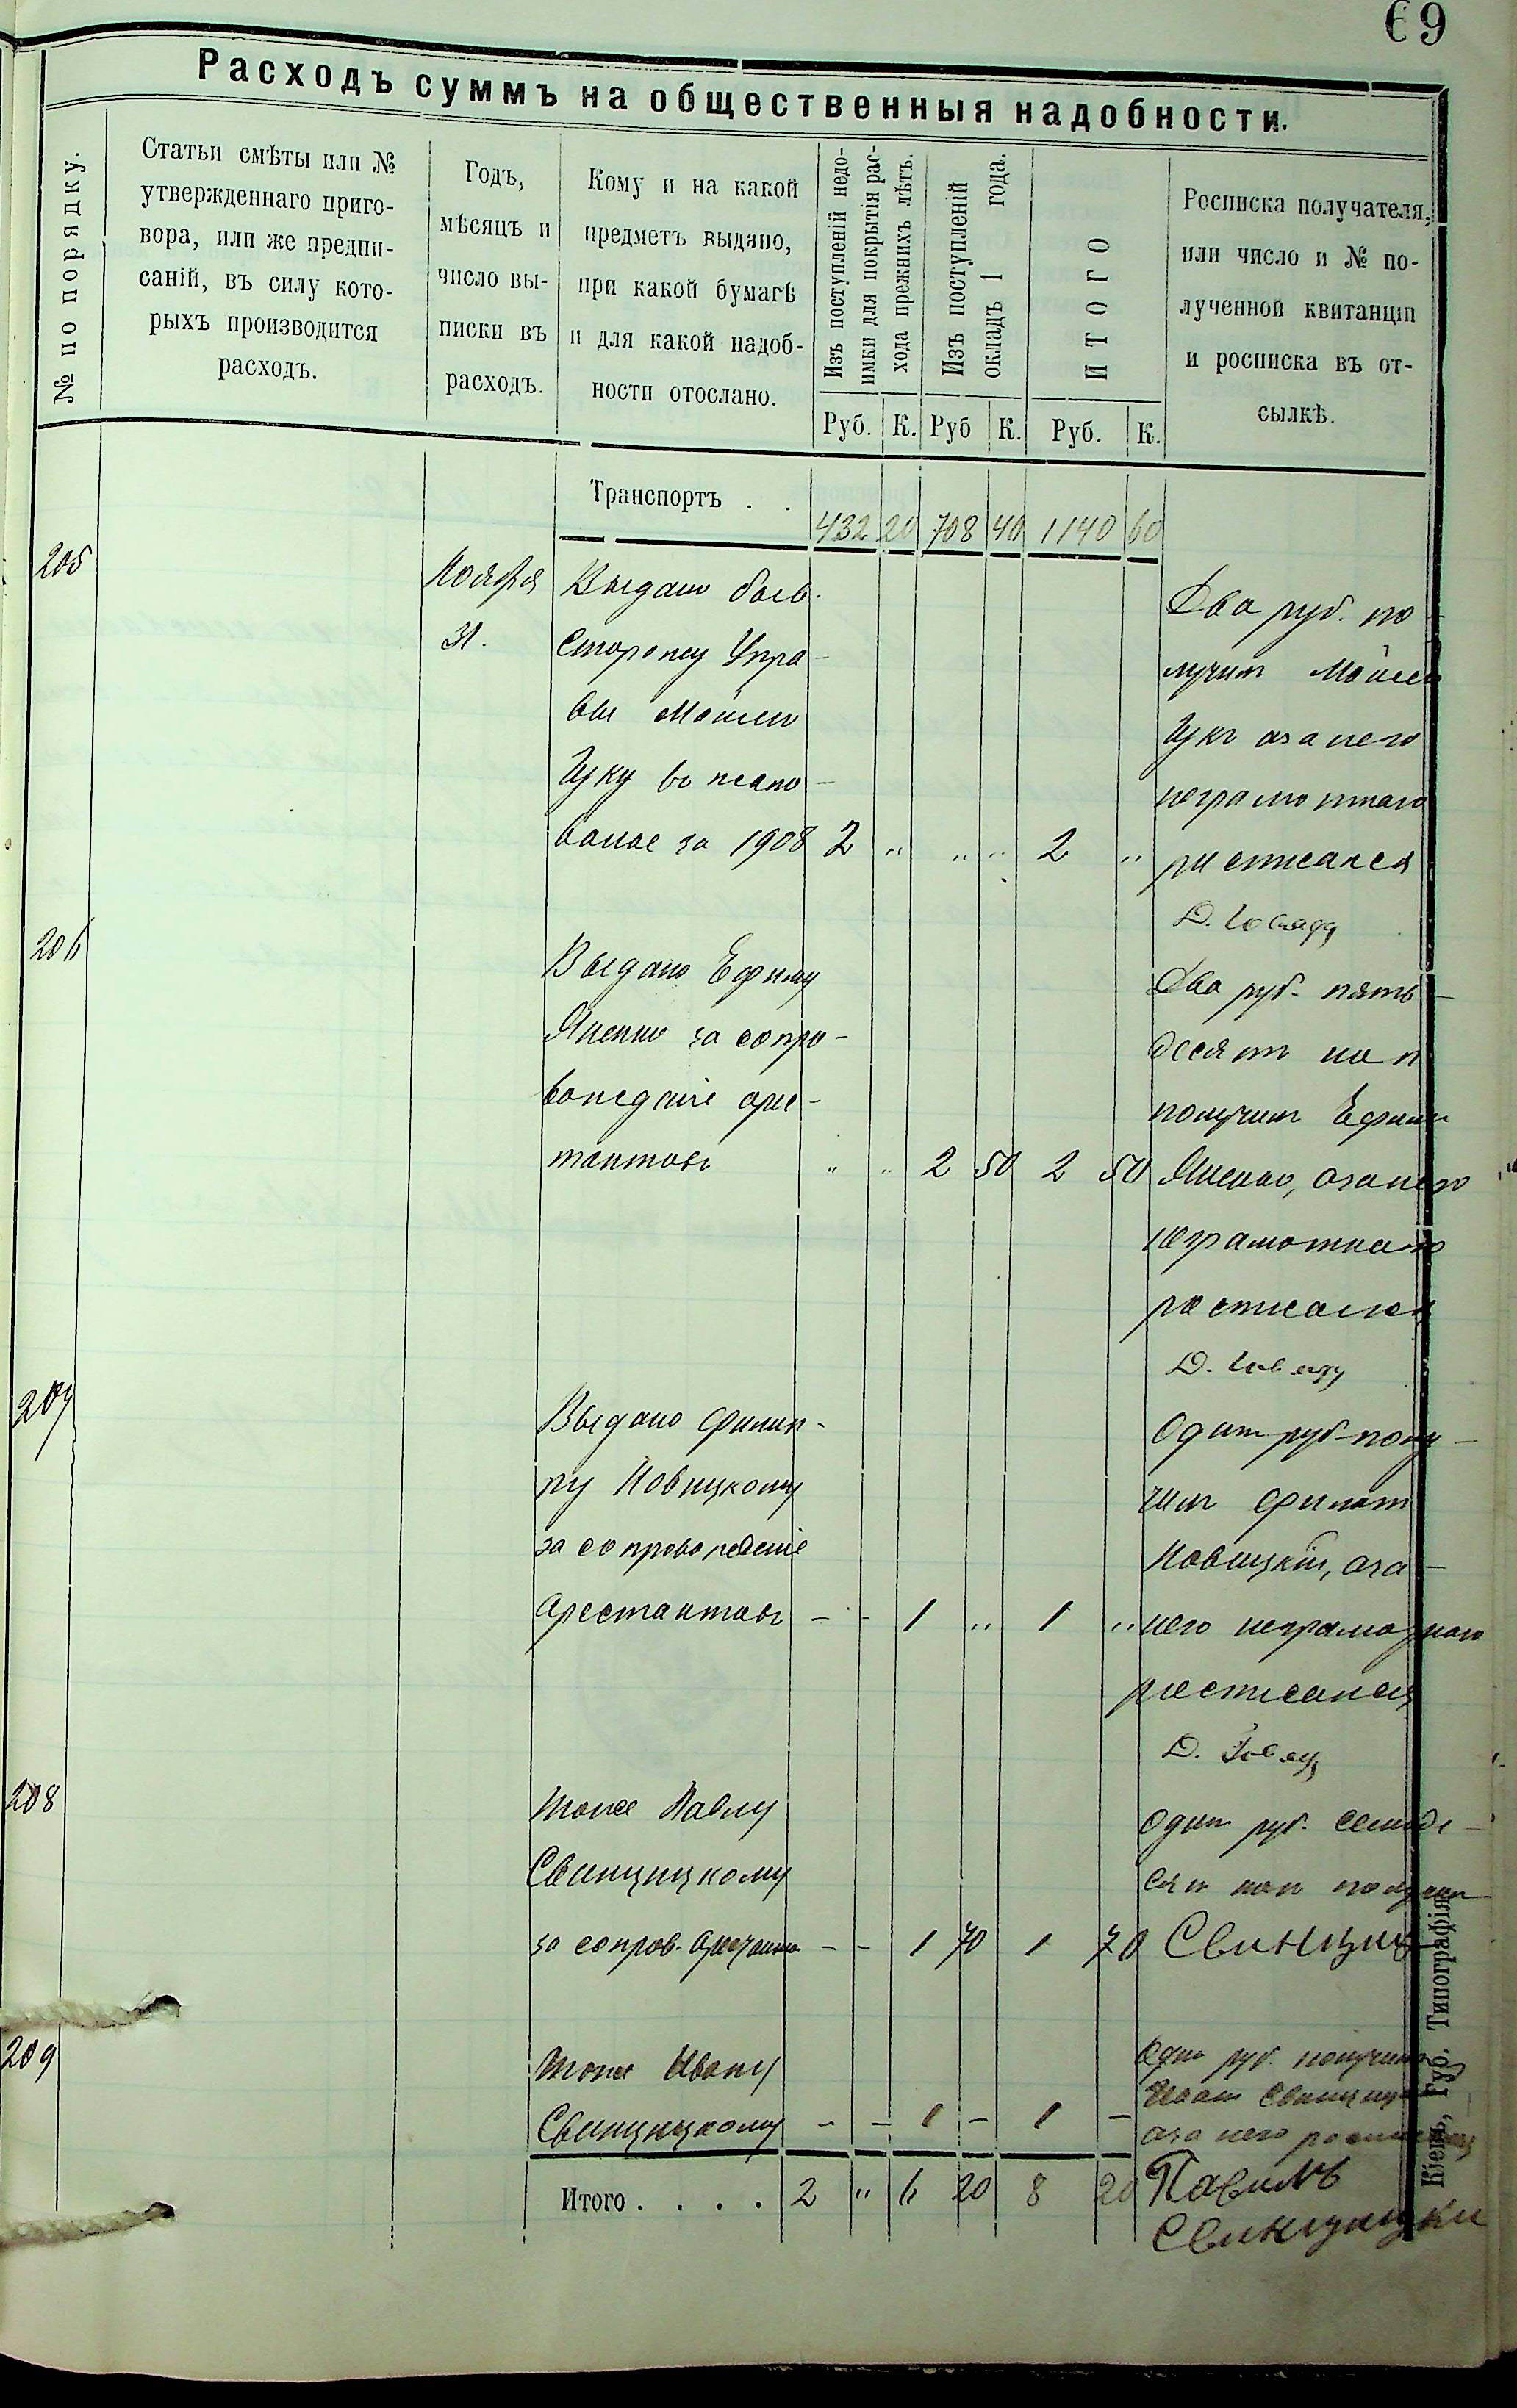 69
Расходъ суммъ на общественныя надобности.
№ по порядку.
Статьи смѣты или №
утвержденнаго приго-
вора, или же предпи-
саній, въ силу кото-
рыхъ производится
расходъ.
Годъ,
мѣсяцъ и
число вы-
писки въ
расходъ.
Кому и на какой
предметъ выдано,
при какой бумагѣ
и для какой надоб-
ности отослано.
Изъ поступленій недо-
имки для покрытія рас-
хода прежнихъ лѣтъ.
Руб. К.
Изъ поступленій
окладъ 1 года.
Руб К.
ИТОГО
Руб. К.
Росписка получателя,
или число и № по-
лученной квитанціи
и росписка въ от-
сылкѣ.
Транспортъ . . 432 20 708 40 1140 60
205
Ноября
Выдано быв.
Сторожу Упра-
вы
за 1908 2 " " " 2 "
Два руб. по
лучилъ
неграмотнаго
росписался
206
Выдано Ефиму
Яненко за сопро-
вожденіе арес-
тантовъ " " 2 50 2 50
Два руб. пять-
десятъ коп
получилъ Ефимъ
Яненко, азанего
неграмотнаго
росписался
207
Выдано Филип-
пу Новицкому
за сопровожденіе
Арестантовъ - - 1 " 1 "
Одинъ руб. полу-
чилъ Филипп
Новицкій, аза-
него неграмотнаго
росписался
208
тоже Павлу
Свинцицкому
за сопров. - - 1 70 1 70
Одинъ руб. семьде-
сят коп получил
209
тоже Ивану
Свинцицкому - - 1 - 1 -
Один руб. получилъ
Иванъ
аза него
Итого . . . . 2 " 6 20 8 20
Павилъ
Свинцицки
Кіевъ, Губ. Типографія